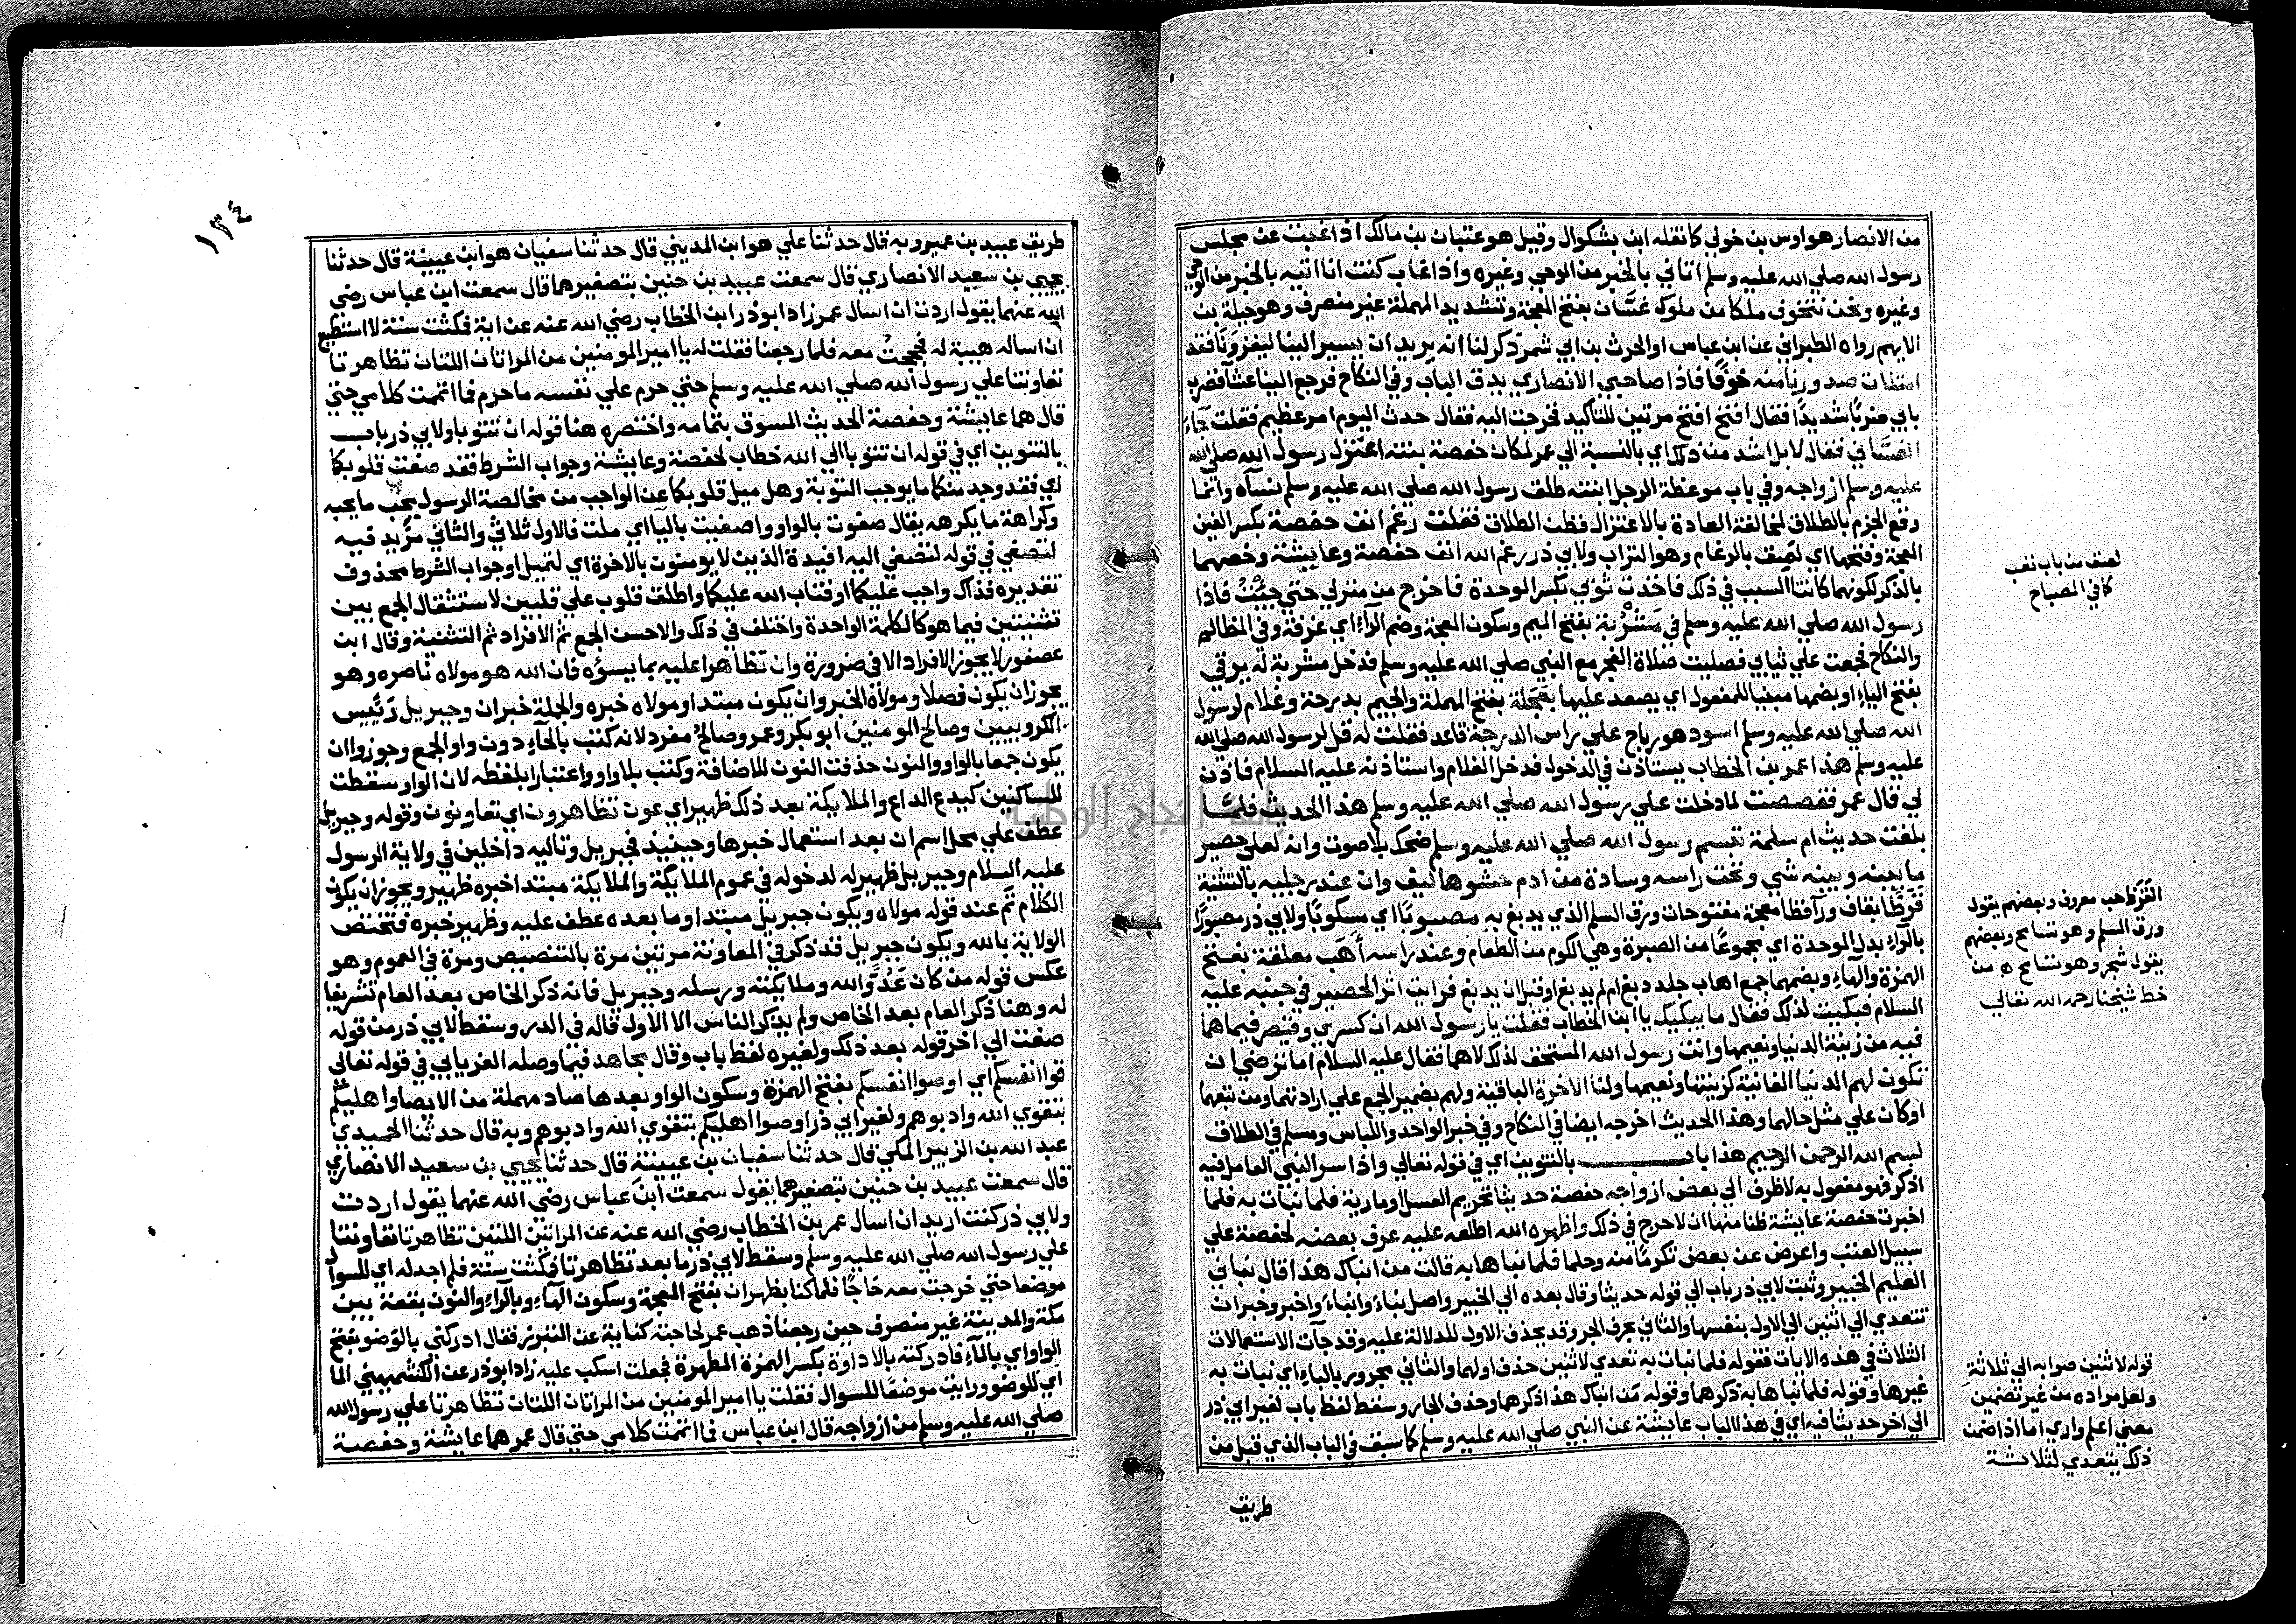 من الانصار هو اوس بن خولي كما نقله ابن بشكوال وقيل هو عتبان بن مالك اذا غبت عن مجلس
رسول الله صلي الله عليه وسلم اتاني بالخبر من الوحي وغيره واذا غاب كنت انا اتيه بالخبر من الوحي
وغيره ونحن نتخوف ملكا من ملوك غسّان بفتح المعجة وتشديد المهملة غير منصرف وهو جبلة بن
الايهم رواه الطبراني عن ابن عباس او الحرث بن ابي شمر ذكر لنا انه يريد ان يسير الينا ليغزونا فقد
امتلات صدورنا منه خوفًا فاذا صاحبي الانصاري يدق الباب وفي النكاح فرجع الينا عشآ فضرب
بابي ضربًا شديدًا فقال افتح افتح مرتين للتاكيد فخرجت اليه فقال حدث اليوم امر عظيم فقلت جآء
الغسّاني فقال لا بل اشد من ذلك اي بالنسبة الي عمر لمكان حفصة بنته اعتزل رسول الله صلي الله
عليه وسلم ازواجه وفي باب موعظة الرجل ابنته طلق رسول الله صلي الله عليه وسلم نسآه وانما
وقع الجزم بالطلاق لمخالفة العادة بالاعتزال فظن الطلاق فقلت رغم انف حفصة بكسر الغين
المعجة وفتحها اي لصق بالرغام وهو التراب ولابي ذر رغم الله انف حفصة وعايشة وخصهما
بالذكر لكونهما كانتا السبب في ذلك فاخذت ثوبي بكسر الموحدة فاخرج من منزلي حتي جيت فاذا
رسول الله صلي الله عليه وسلم في مشربة بفتح الميم وسكون المعجة وضم الرآء اي غرفة وفي المظالم
والنكاح فجمعت علي ثيابي فصليت صلاة الفجر مع النبي صلي الله عليه وسلم فدخل مشربة له يرقي
بفتح الياء او بضمها مبنيا للمفعول اي يصعد عليها بعجلة بفتح المهملة والجيم بدرجة وغلام لرسول
الله صلي الله عليه وسلم اسود هو رباح علي راس الدرجة قاعد فقلت له قل لرسول الله صلي الله
عليه وسلم هذا عمر بن الخطاب يستاذن في الدخول فدخل الغلام واستاذنه عليه السلام فاذن
لي قال عمر فقصصت لما دخلت علي رسول الله صلي الله عليه وسلم هذا الحديث فلمّا
بلغت حديث ام سلمة تبسم رسول الله صلي الله عليه وسلم ضحك بلا صوت وانه لعلي حصير
ما بينه وبينه شي وتحت راسه وسادة من ادم حشوها ليف وان عند رجليه بالتثنية
قرظًا بقاف ورآ فظا معجة مفتوحات ورق السلم الذي يدبغ به مصبوبًا اي مسكوبًا ولابي ذر مصبورًا
بالرآء بدل الموحدة اي مجموعًا من الصبرة وهي الكوم من الطعام وعند راسه أهب معلقة بفتح
الهمزة والهاء وبضمهما جمع اهاب جلد دبغ ام لم يدبغ او قبل ان يدبغ فرايت اثر الحصير في جنبه عليه
السلام فبكيت لذلك فقال ما يبكيك يا ابن الخطاب فقلت يا رسول الله ان كسري وقيصر فيما هما
فيه من زينة الدنيا ونعيمها وانت رسول الله المستحق لذلك لا هما فقال عليه السلام اما ترضي ان
تكون لهم الدنيا الفانية كزينتها ونعيمها ولنا الاخرة الباقية ولهم بضمير الجمع علي ارادتهما ومن تبعهما
او كان علي مثل حالهما وهذا الحديث اخرجه ايضا في النكاح وفي خبر الواحد واللباس ومسلم في الطلاق
بسم الله الرحمن الرحيم هذا باب بالتنوين اي في قوله تعالي واذا سر النبي العامل فيه
اذكر فهو مفعول به لا ظرف الي بعض ازواجه حفصة حديثا تحريم العسل او مارية فلما نبات به فلما
اخبرت حفصة عايشة ظنا منها ان لا حرج في ذلك واظهره الله اطلعه عليه عرف بعضه لحفصة علي
سبيل العتب واعرض عن بعض تكرمًا منه وحلما فلما نباها به قالت من انباك هذا قال نباني
العليم الخبير وثبت لابي ذر باب الي قوله حديثا وقال بعده الي الخبير واصل نباء وانباء واخبر وخبر ان
تتعدي الي اثنين الي الاول بنفسها والثاني بحرف الجر وقد يحذف الاول للدلالة عليه وقد جآت الاستعمالات
الثلاث في هذه الايات فقوله فلما نبات به تعدي لاثنين حذف اولهما والثاني مجرور بالباء اي نبات به
غيرها وقوله فلما نباها به ذكرهما وقوله من انباك هذا ذكرهما وحذف الجار وسقط لفظ باب لغير ابي ذر
الي اخر حديثا فيه اي في هذا الباب عايشة عن النبي صلي الله عليه وسلم كما سبق في الباب الذي قبل من
طريق
لصق من باب تعب
كما في المصباح
القرظ حب معروف وبعضهم يقول
ورق السلم وهو تسامح وبعضهم
يقول شجر وهو تسامح ه من
خط شيخنا رحمه الله تعالي
قوله لاثنين صوابه الي ثلاثة
ولعل مراده من غير تضمين
معني اعلم واري اما اذا ضمن
ذلك يتعدي لثلاثة
١٣٤
طريق عبيد بن عمير وبه قال حدثنا علي هو ابن المديني قال حدثنا سفيان هو ابن عيينة قال حدثنا
يحيي بن سعيد الانصاري قال سمعت عبيد بن حنين بتصغيرهما قال سمعت ابن عباس رضي
الله عنهما يقول اردت ان اسال عمر زاد ابو ذر ابن الخطاب رضي الله عنه عن اية فمكثت سنة لا استطيع
ان اساله هيبة له فحججت معه فلما رجعنا فقلت له يا امير المومنين من المراتان اللتان تظاهرتا
تعاونتا علي رسول الله صلي الله عليه وسلم حتي حرم علي نفسه ما حرم فما اتممت كلامي حتي
قال هما عايشة وحفصة الحديث المسوق بتمامه واختصره هنا قوله ان تتوبا ولابي ذر باب
بالتنوين اي في قوله ان تتوبا الي الله خطاب لحفصة وعايشة وجواب الشرط فقد صغت قلوبكما
اي فقد وجد منكما ما يوجب التوبة وهل ميل قلوبكما عن الواجب من مخالصة الرسول بحب ما يحبه
وكراهة ما يكرهه يقال صغوت بالواو واصغيت باليا اي ملت فالاول ثلاثي والثاني مزيد فيه
لتصغي في قوله لتصغي اليه افيدة الذين لا يومنون بالاخرة اي لتميل او جواب الشرط محذوف
تقديره فذاك واجب عليكما او فتاب الله عليكما واطلق قلوب علي قلبين لاستثقال الجمع بين
تثنيتين فيما هو كالكلمة الواحدة واختلف في ذلك والاحسن الجمع ثم الافراد ثم التثنية وقال ابن
عصفور لا يجوز الافراد الا في ضرورة وان تظاهرا عليه بما يسؤه فان الله هو مولاه ناصره وهو
يجوز ان يكون فصلا ومولاه الخبر وان يكون مبتدا ومولاه خبره والجملة خبر ان وجبريل رئيس
الكروبيين وصالح المومنين ابو بكر وعمر وصالح مفرد لانه كتب بالحاء دون واو الجمع وجوزوا ان
يكون جمعا بالواو والنون حذفت النون للاضافة وكتب بلا واو اعتبارا بلفظه لان الواو سقطت
للساكنين كيدع الداع والملايكة بعد ذلك ظهير اي عون تظاهرون اي تعاونون وقوله وجبريل
عطف علي محل اسم ان بعد استعمال خبرها وحينيذ فجبريل وتاليه داخلين في ولاية الرسول
عليه السلام وجبريل ظهير له لدخوله في عموم الملايكة والملايكة مبتدا خبره ظهير ويجوز ان يكون
الكلام تم عند قوله مولاه ويكون جبريل مبتدا وما بعده عطف عليه وظهير خبره فتختص
الولاية بالله ويكون جبريل قد ذكر في المعاونة مرتين مرة بالتنصيص ومرة في العموم وهو
عكس قوله من كان عدوًّا لله وملايكته ورسله وجبريل فانه ذكر الخاص بعد العام تشريفا
له وهنا ذكر العام بعد الخاص ولم يذكر الناس الا الاول قاله في الدر وسقط لابي ذر من قوله
صغت الي اخر قوله بعد ذلك ولغيره لفظ باب وقال مجاهد فيما وصله الفريابي في قوله تعالي
قوا انفسكم اي اوصوا انفسكم بفتح الهمزة وسكون الواو بعدها صاد مهملة من الايصا واهليكم
بتقوي الله وادبوهم ولغير ابي ذر اوصوا اهليكم بتقوي الله وادبوهم وبه قال حدثنا الحميدي
عبد الله بن الزبير المكي قال حدثنا سفيان بن عيينة قال حدثنا يحيي بن سعيد الانصاري
قال سمعت عبيد بن حنين بتصغيرهما يقول سمعت ابن عباس رضي الله عنهما يقول اردت
ولابي ذر كنت اريد ان اسال عمر بن الخطاب رضي الله عنه عن المراتين اللتين تظاهرتا تعاونتا
علي رسول الله صلي الله عليه وسلم وسقط لابي ذر ما بعد تظاهرتا فمكثت سنة فلم اجد له اي للسوال
موضعا حتي خرجت معه حاجًّا فلما كنا بظهران بفتح المعجة وسكون الهاء وبالراء والنون بقعة بين
مكة والمدينة غير منصرف حين رجعنا ذهب عمر لحاجته كناية عن التبرز فقال ادركني بالوضو بفتح
الواو اي بالمآء فادركته بالاداوة بكسر الهمزة المطهرة فجعلت اسكب عليه زاد ابو ذر عن الكشميهني الما
اي للوضو ورايت موضعًا للسوال فقلت يا امير المومنين من المراتان اللتان تظاهرتا علي رسول الله
صلي الله عليه وسلم من ازواجه قال ابن عباس فما اتممت كلامي حتي قال عمر هما عايشة وحفصة